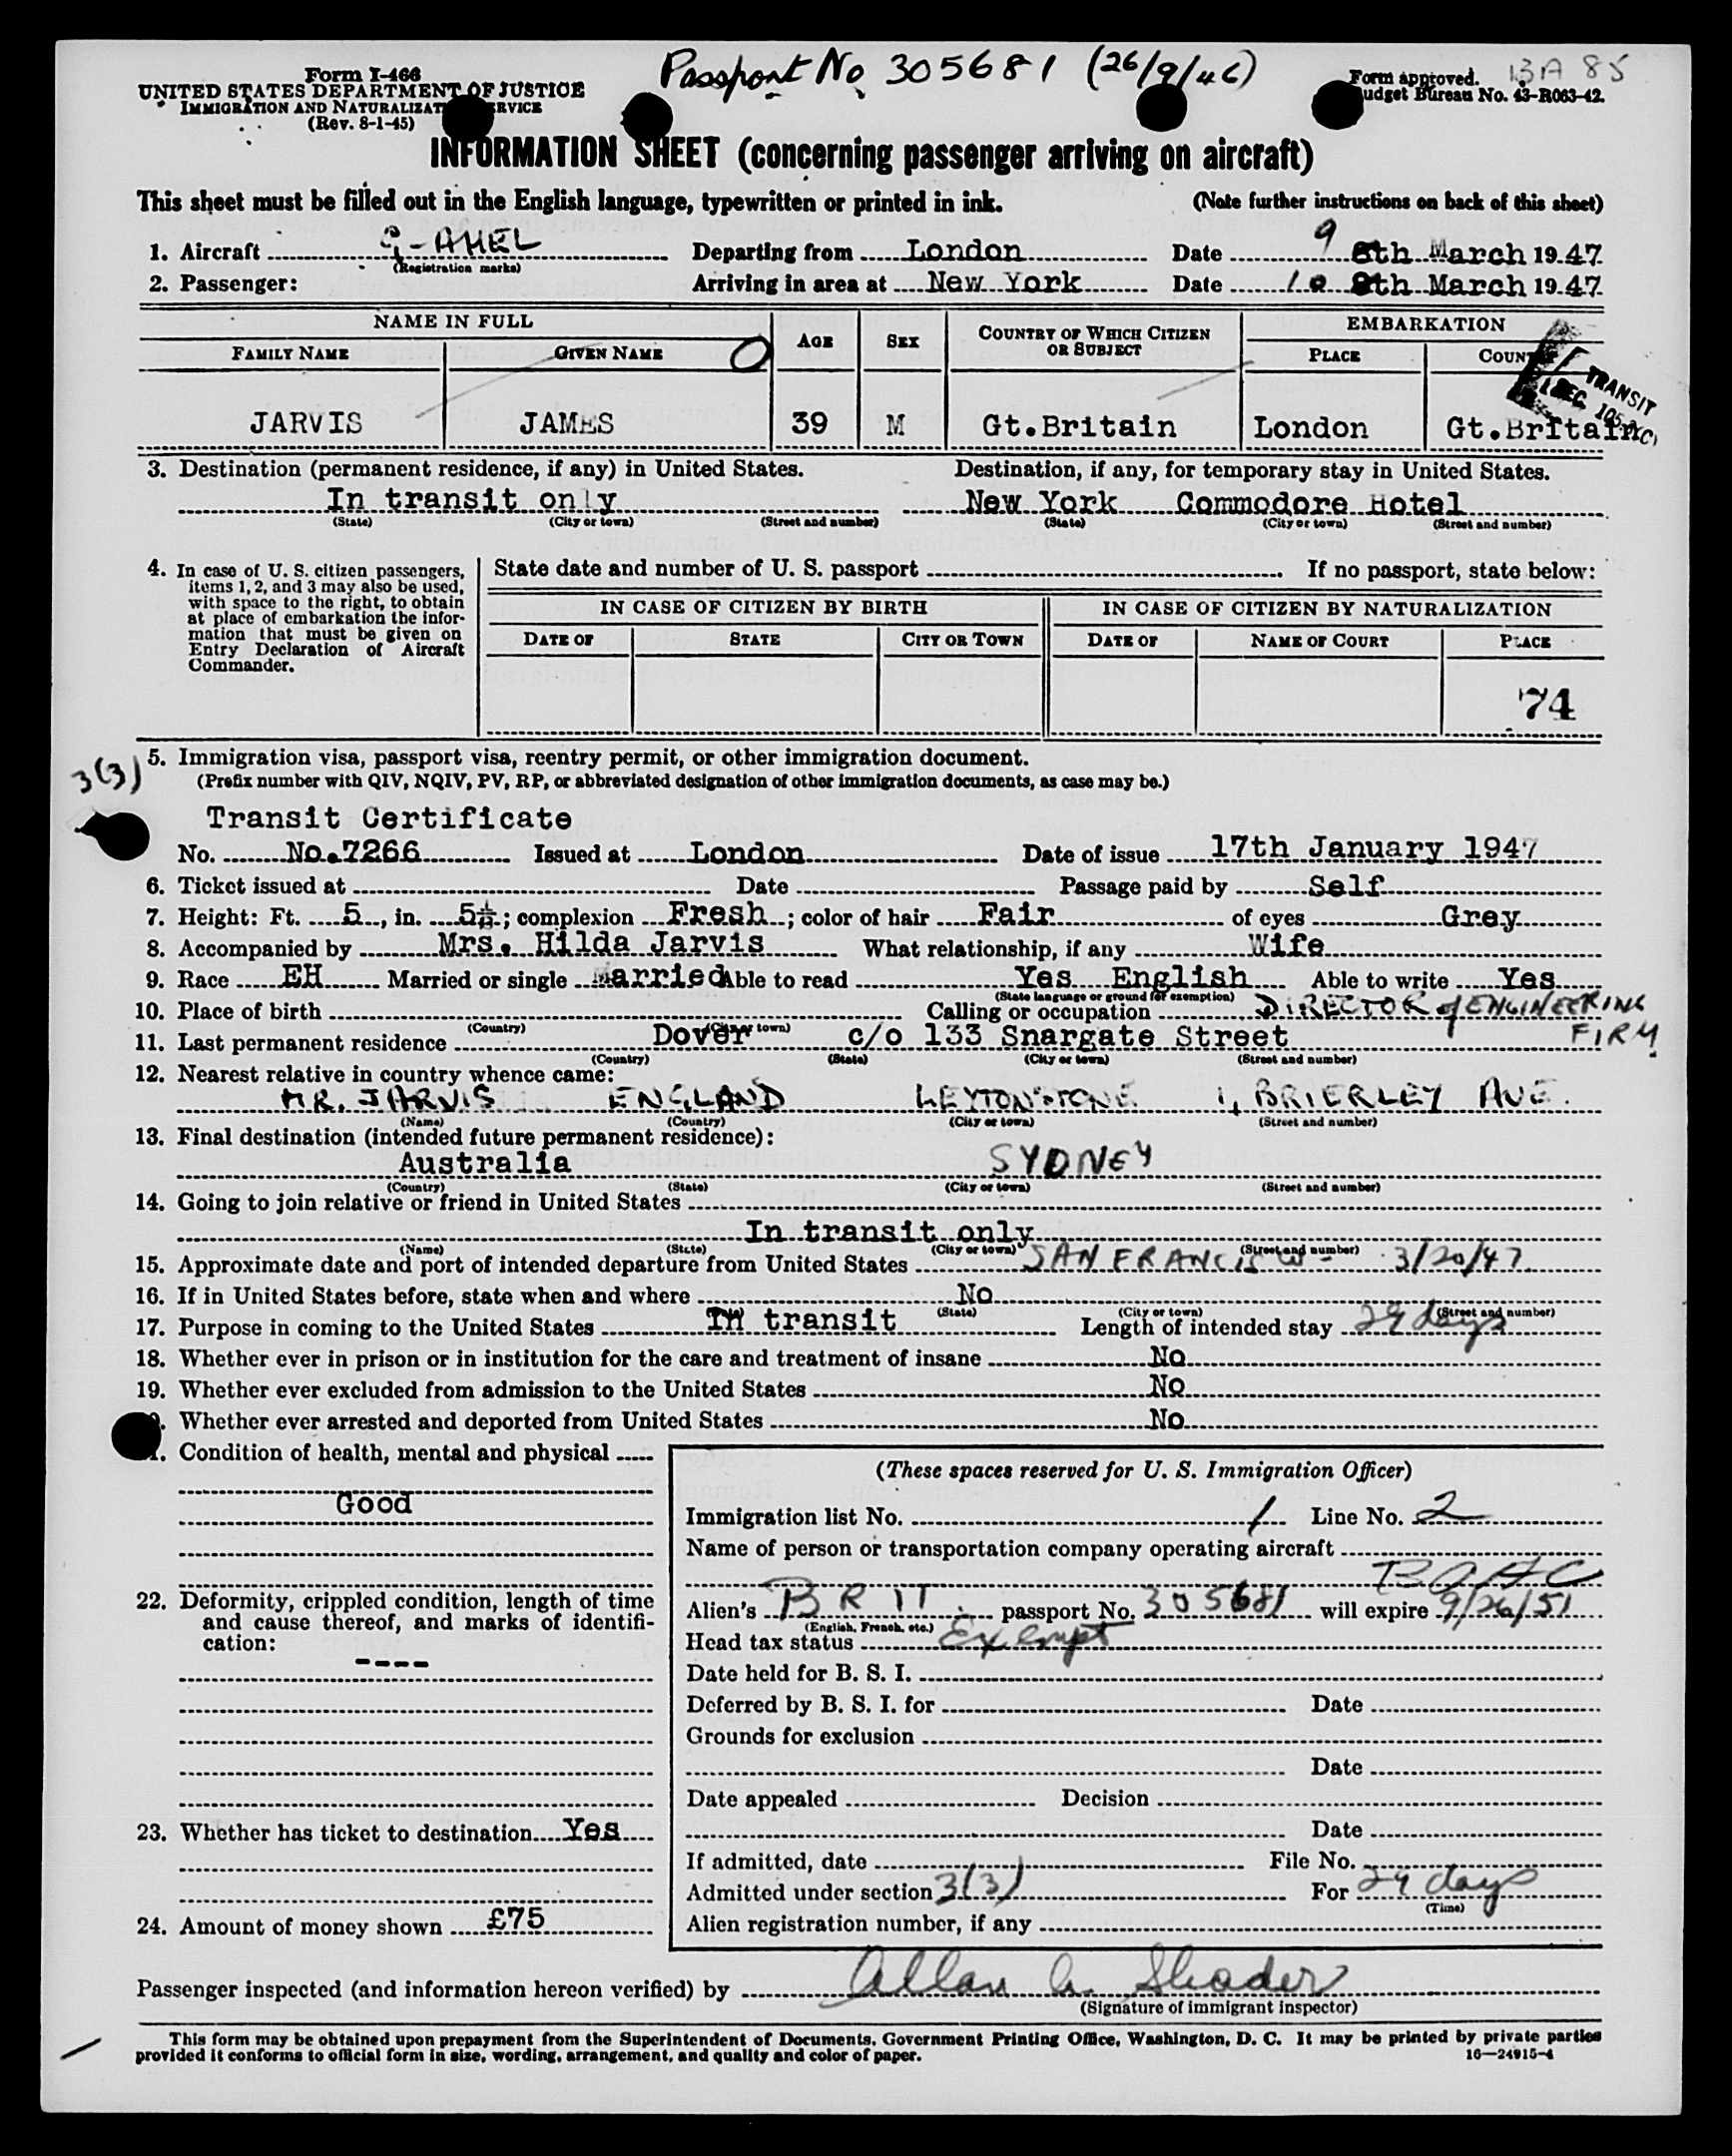 Passport No 305681 (26/9/46)
13A 85
Form I-466
UNITED STATES DEPARTMENT OF JUSTICE
IMMIGRATION AND NATURALIZAT RVICE
(Rev. 8-1-45)
Form approved.
udget Bureau No. 43-R063-42.
INFORMATION SHEET (concerning passenger arriving on aircraft)
This sheet must be filled out in the English language, typewritten or printed in ink. (Note further instructions on back of this sheet)
1. Aircraft G-AHEL Departing from London Date 9 8th March 1947
(Registration marks)
2. Passenger: Arriving in area at New York Date 10 9th March 1947
NAME IN FULL
FAMILY NAME GIVEN NAME AGE SEX COUNTRY OF WHICH CITIZEN OR SUBJECT EMBARKATION
PLACE COUNT
TRANSIT
SEC. 105.3(C)
JARVIS JAMES 39 M Gt.Britain London Gt.Britain
3. Destination (permanent residence, if any) in United States. Destination, if any, for temporary stay in United States.
In transit only New York Commodore Hotel
(State) (City or town) (Street and number) (State) (City or town) (Street and number)
4. In case of U. S. citizen passengers, items 1, 2, and 3 may also be used, with space to the right, to obtain at place of embarkation the information that must be given on Entry Declaration of Aircraft Commander.
State date and number of U. S. passport If no passport, state below:
IN CASE OF CITIZEN BY BIRTH IN CASE OF CITIZEN BY NATURALIZATION
DATE OF STATE CITY OR TOWN DATE OF NAME OF COURT PLACE
74
3(3)
5. Immigration visa, passport visa, reentry permit, or other immigration document.
(Prefix number with QIV, NQIV, PV, RP, or abbreviated designation of other immigration documents, as case may be.)
Transit Certificate
No. No.7266 Issued at London Date of issue 17th January 1947
6. Ticket issued at Date Passage paid by Self
7. Height: Ft. 5, in. 5½; complexion Fresh; color of hair Fair of eyes Grey
8. Accompanied by Mrs. Hilda Jarvis What relationship, if any Wife
9. Race EH Married or single Married Able to read Yes English Able to write Yes
(State language or ground for exemption)
10. Place of birth Calling or occupation DIRECTOR of ENGINEERING FIRM
(Country) (City or town)
11. Last permanent residence Dover c/o 133 Snargate Street
(Country) (State) (City or town) (Street and number)
12. Nearest relative in country whence came:
MR. JARVIS ENGLAND LEYTONSTONE 1, BRIERLEY AVE.
(Name) (Country) (City or town) (Street and number)
13. Final destination (intended future permanent residence):
Australia SYDNEY
(Country) (State) (City or town) (Street and number)
14. Going to join relative or friend in United States
In transit only
(Name) (State) (City or town) (Street and number)
15. Approximate date and port of intended departure from United States SAN FRANCISCO - 3/20/47
16. If in United States before, state when and where No
(State) (City or town) (Street and number)
17. Purpose in coming to the United States In transit Length of intended stay 29 days
18. Whether ever in prison or in institution for the care and treatment of insane No
19. Whether ever excluded from admission to the United States No
Whether ever arrested and deported from United States No
Condition of health, mental and physical
Good
22. Deformity, crippled condition, length of time and cause thereof, and marks of identification:
----
23. Whether has ticket to destination Yes
24. Amount of money shown £75
(These spaces reserved for U. S. Immigration Officer)
Immigration list No. 1 Line No. 2
Name of person or transportation company operating aircraft
BOAC
Alien's BRIT. passport No. 305681 will expire 9/26/51
(English, French, etc.)
Head tax status Exempt
Date held for B. S. I.
Deferred by B. S. I. for Date
Grounds for exclusion
Date
Date appealed Decision
Date
If admitted, date File No.
Admitted under section 3(3) For 29 days
(Time)
Alien registration number, if any
Passenger inspected (and information hereon verified) by Allan A. Shader
(Signature of immigrant inspector)
This form may be obtained upon prepayment from the Superintendent of Documents, Government Printing Office, Washington, D. C. It may be printed by private parties
provided it conforms to official form in size, wording, arrangement, and quality and color of paper. 16—24915-4